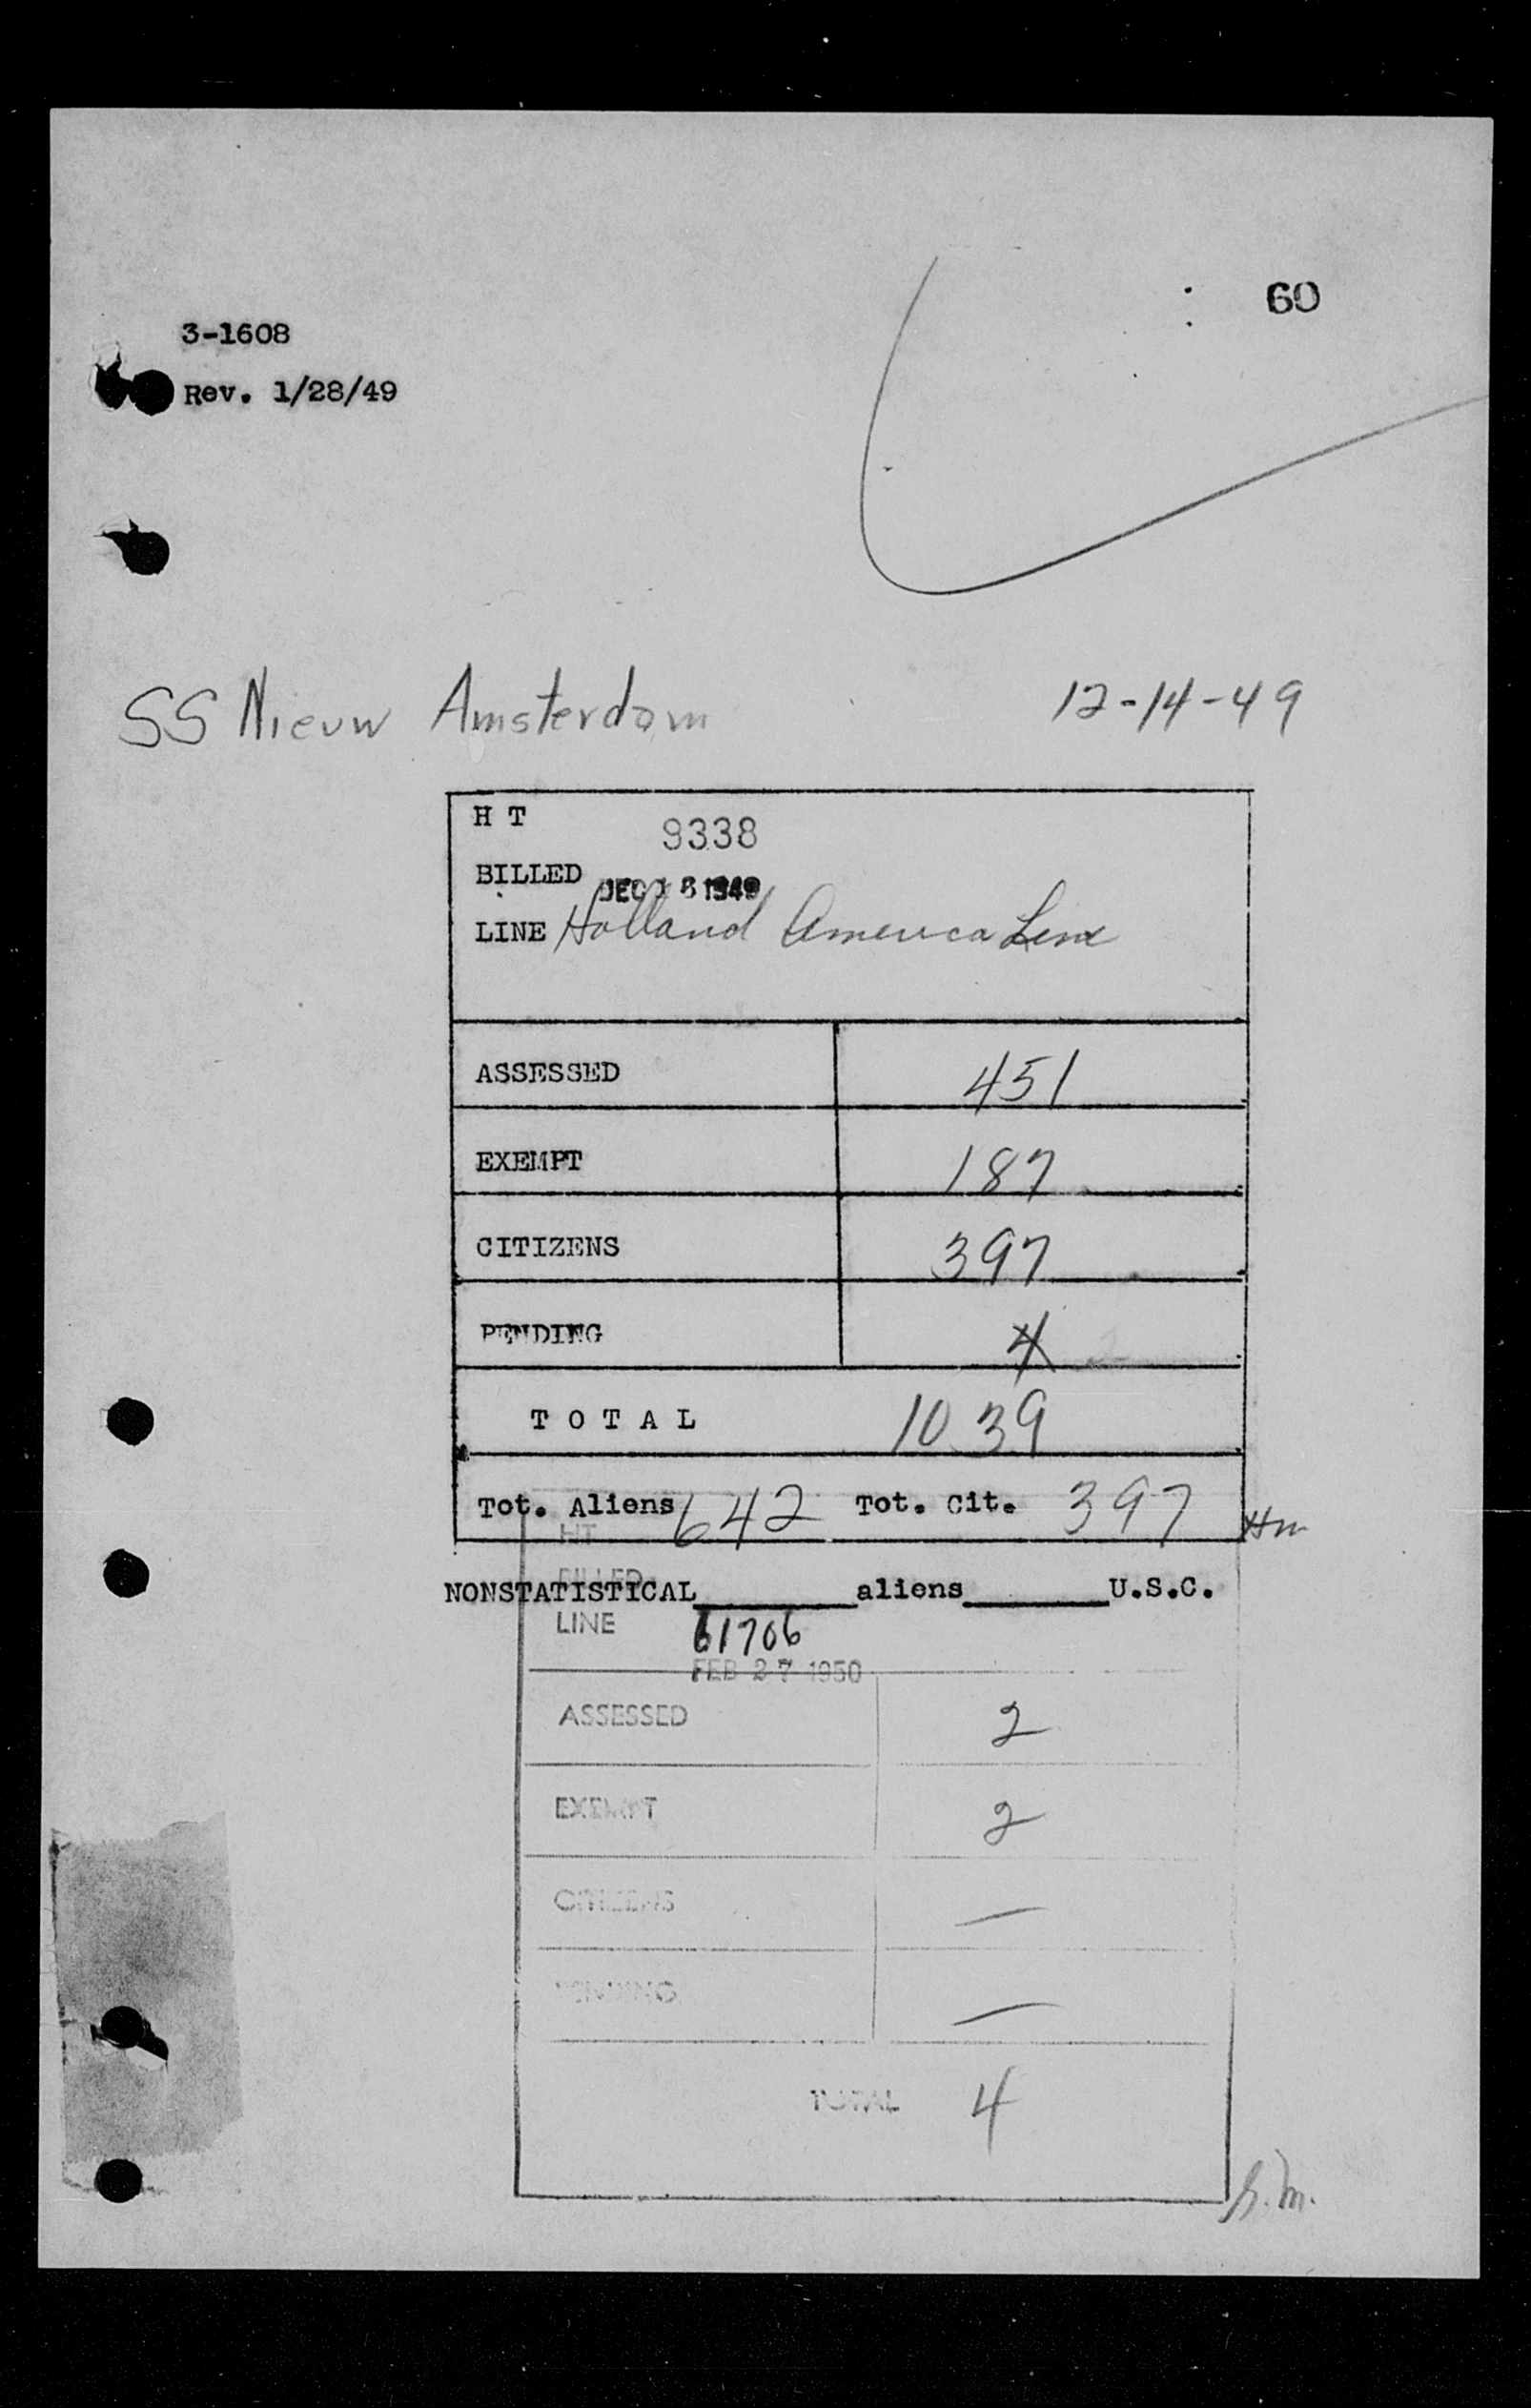 60
3-1608
Rev. 1/28/49
SS Nieuw Amsterdam 12-14-49
H T 9338
BILLED DEC 1949
LINE Holland America Line
ASSESSED 451
EXEMPT 187
CITIZENS 397
PENDING 4
T O T A L 1039
Tot. Aliens 642 Tot. Cit. 397 Hm
HT
BILLED
NONSTATISTICAL aliens U.S.C.
LINE 61706
FEB 27 1950
ASSESSED 2
EXEMPT 2
CITIZENS —
PENDING —
TOTAL 4